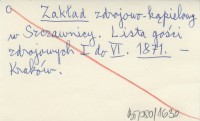 Zakład zdrojowo-kąpielowy
w Szczawnicy. Lista gości
zdrojowych I do VI. 1871. –
Kraków.